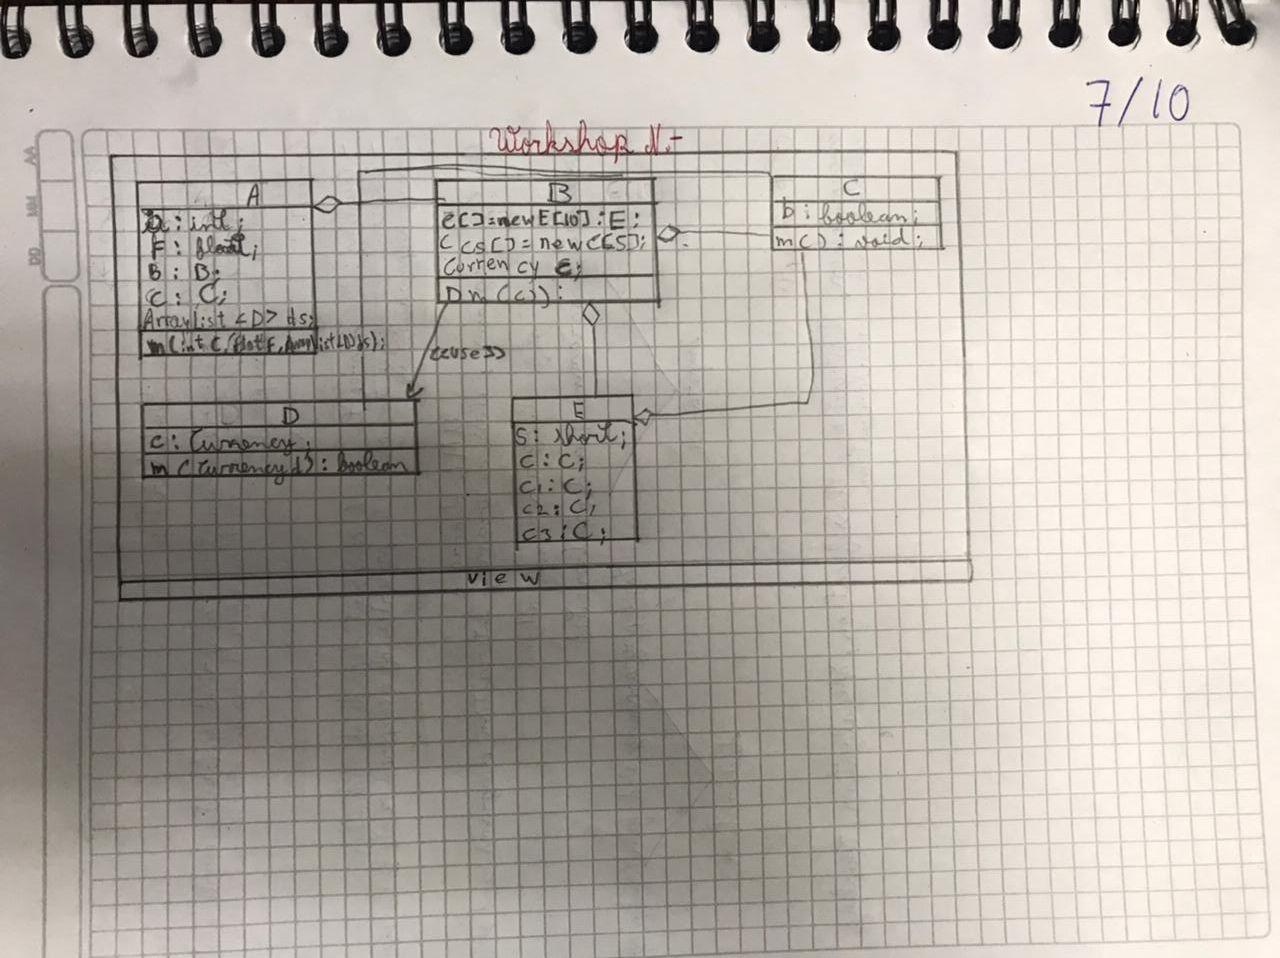 7/10
Workshop N:-
A
a : int;
F : float;
B : B;
C : C;
Arraylist <D> ds;
m(int C, float F, Arraylist<D>ds);
B
e[]=new E[10] : E;
C cs[] = new C[5];
Currency c;
D m (c)) :
C
b : boolean;
m() : void;
<<use>>
D
c : Currency;
m (Currency d) : boolean
E
s : short;
c : C;
c1 : C;
c2 : C,
c3 : C;
view